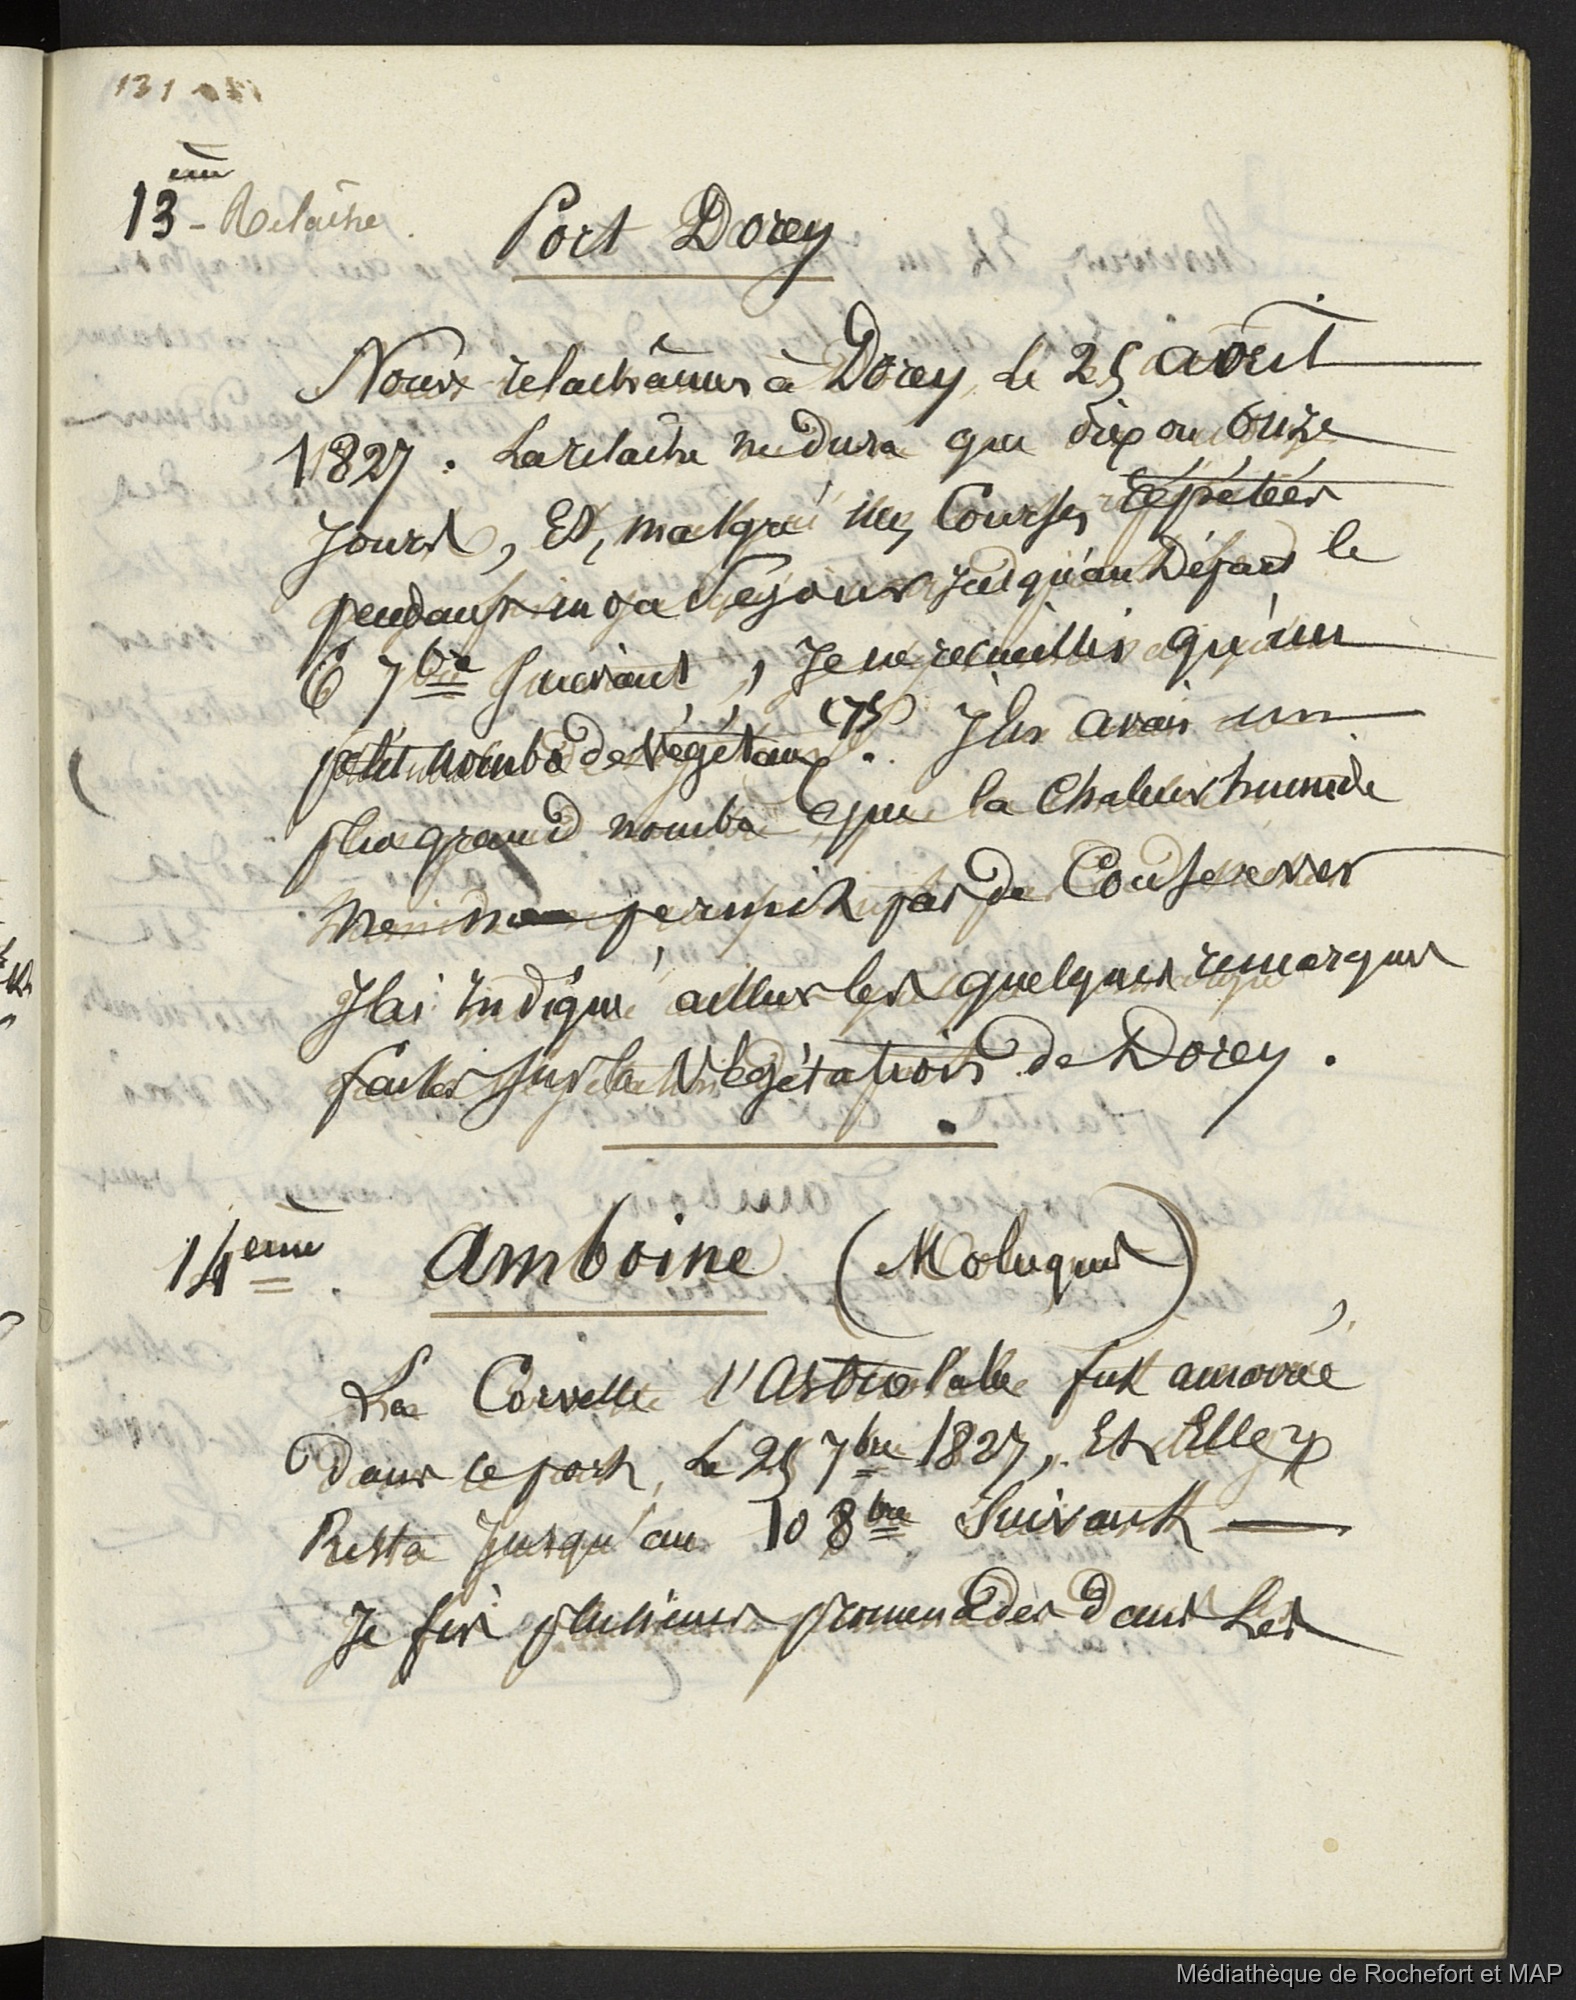 131
13ème - Relâche. Port Dorey
Nous relachâmes à Dorey, le 25 août
1827. La relâche ne dura que dix ou onze
jours, Et, malgré mes Courses répétées
pendant ma Séjour jusqu'au Départ le
6 7bre suivant, Je ne recueillis qu'un
petit nombre de végétaux (75). J'en avais un
plus grand nombre que la Chaleur humide
ne me permit pas de Conserver
J'ai indiqué ailleurs les quelques remarques
faites sur la Végétation de Dorey.
14ème. Amboine (Moluques)
La Corvette l'Astrolabe fut amarrée
dans ce port, Le 25 7bre 1827, Et Elle y
Resta Jusqu'au 10 8bre Suivant —
Je fis plusieurs promenades dans Les
Médiathèque de Rochefort et MAP